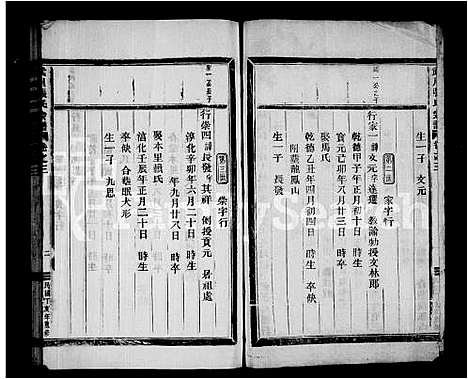 生一子 文元
第二世
家字行
行家一 諱文元 字達運 教諭勅授文林郎
乾德甲子年正月初十日 時生
寶元己卯年八月廿三日 時卒
娶馬氏
乾德乙丑年四月初四日 時生 卒缺
附葬龍鳳山
生一子 長發
第三世
榮字行
行榮四 諱長發 字其祥 例授貢元 居祖處
淳化辛卯年六月二十日 時生
年九月廿八日 時卒
娶本里賴氏
淳化壬辰年正月二十日 時生
卒缺 合葬眠犬形
生一子 九恩
二
民國丁亥年重修